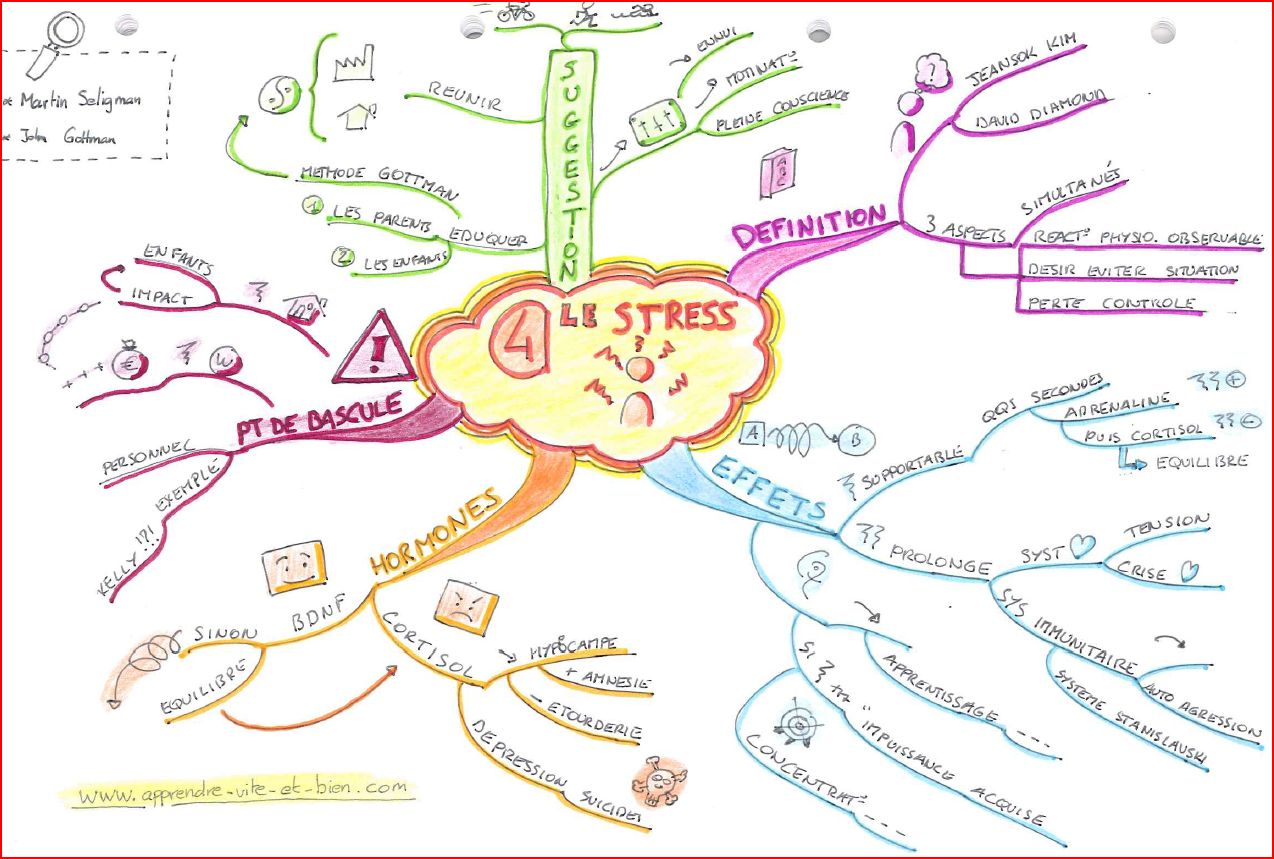 Martin Seligman
John Gottman
4
LE STRESS
SUGGESTION
REUNIR
METHODE GOTTMAN
EDUQUER
1 LES PARENTS
2 LES ENFANTS
ENNUI
MOTIVAT°
PLEINE CONSCIENCE
DEFINITION
ABC
?
JEANSOK KIM
DAVID DIAMOND
3 ASPECTS
SIMULTANÉS
REACT° PHYSIO. OBSERVABLE
DESIR EVITER SITUATION
PERTE CONTROLE
EFFETS
A
B
SUPPORTABLE
QQS SECONDES
ADRENALINE
+
PUIS CORTISOL
-
EQUILIBRE
PROLONGE
SYST
TENSION
CRISE
SYS IMMUNITAIRE
AUTO AGRESSION
SYSTEME STANISLAVSKI
APPRENTISSAGE ---
SI
" IMPUISSANCE ACQUISE
CONCENTRAT° ---
HORMONES
BDNF
SINON
EQUILIBRE
CORTISOL
HYPPOCAMPE
+ AMNESIE
- ETOURDERIE
DEPRESSION
SUICIDES
PT DE BASCULE
!
ENFANTS
IMPACT
+++
€
W
PERSONNEL
EXEMPLE
KELLY !?!
www.apprendre-vite-et-bien.com